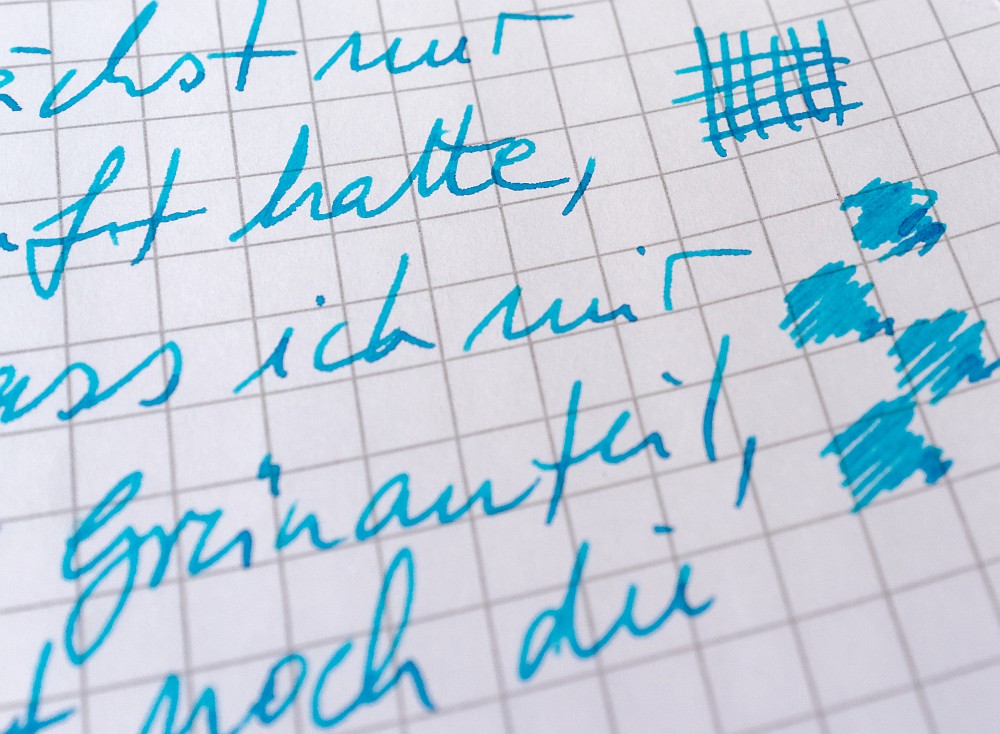 ächst nur
ft hatte,
ass ich mir
Grünanteil,
t noch die